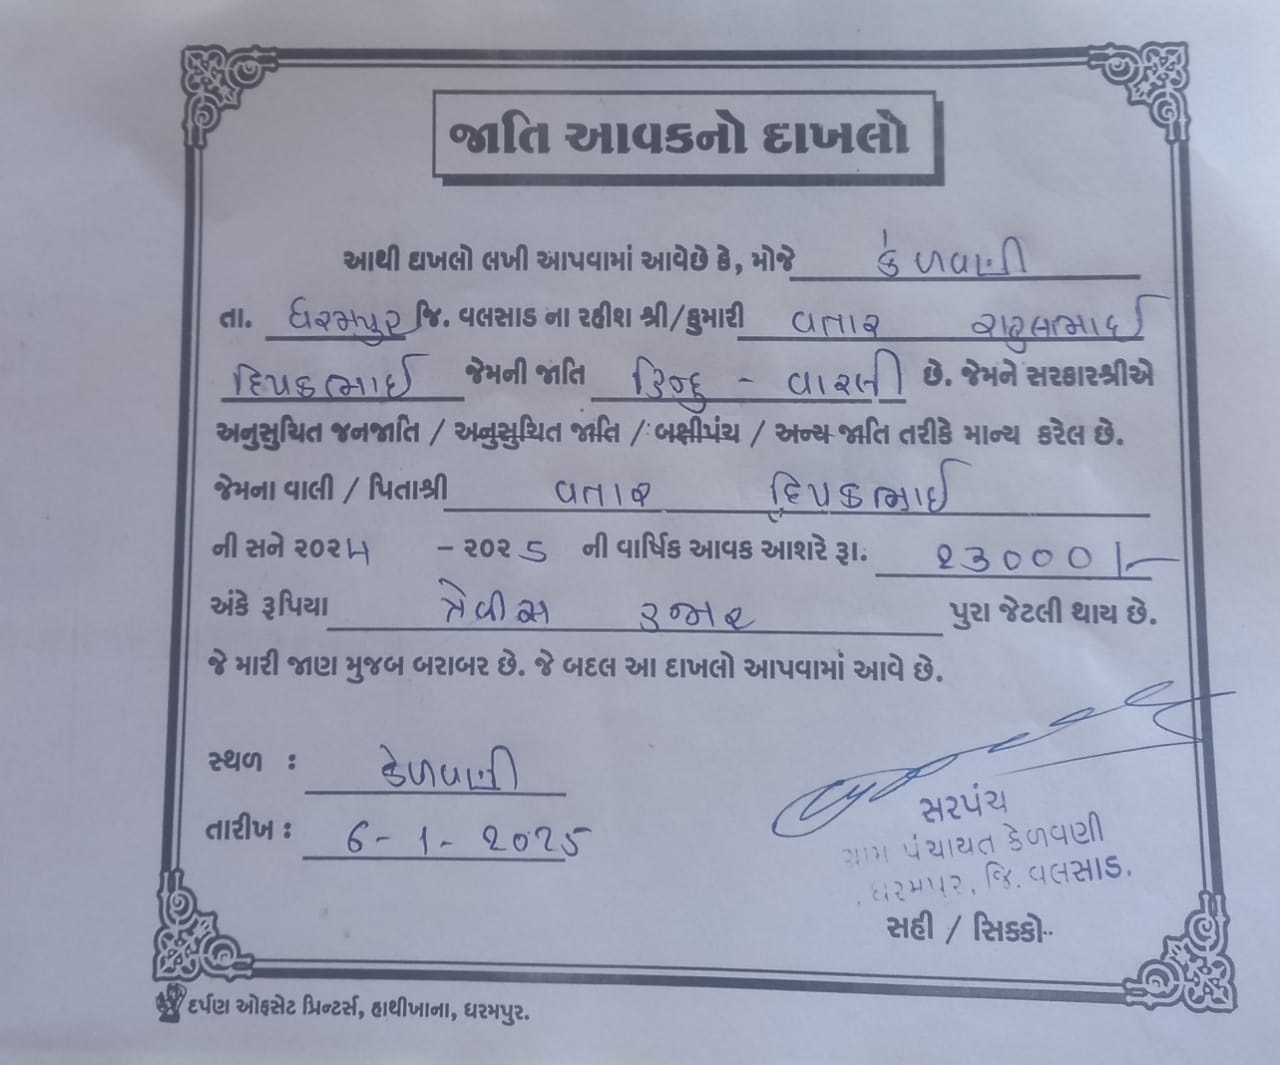 જાતિ આવકનો દાખલો
આથી દાખલો લખી આપવામાં આવેછે કે, મોજે કેળવણી
તા. ધરમપુર જિ. વલસાડ ના રહીશ શ્રી/કુમારી વતાર રાહુલભાઈ
દિપકભાઈ જેમની જાતિ હિન્દુ - વારલી છે. જેમને સરકારશ્રીએ
અનુસુચિત જનજાતિ / અનુસુચિત જાતિ / બક્ષીપંચ / અન્ય જાતિ તરીકે માન્ય કરેલ છે.
જેમના વાલી / પિતાશ્રી વતાર દિપકભાઈ
ની સને ૨૦૨૪ - ૨૦૨૫ ની વાર્ષિક આવક આશરે રૂા. ૨૩૦૦૦/-
અંકે રૂપિયા ત્રેવીસ હજાર પુરા જેટલી થાય છે.
જે મારી જાણ મુજબ બરાબર છે. જે બદલ આ દાખલો આપવામાં આવે છે.
સ્થળ : કેળવણી
તારીખ : ૬-૧-૨૦૨૫
સરપંચ
ગ્રામ પંચાયત કેળવણી
ધરમપુર, જિ. વલસાડ.
સહી / સિક્કો
દર્પણ ઓફસેટ પ્રિન્ટર્સ, હાથીખાના, ધરમપુર.